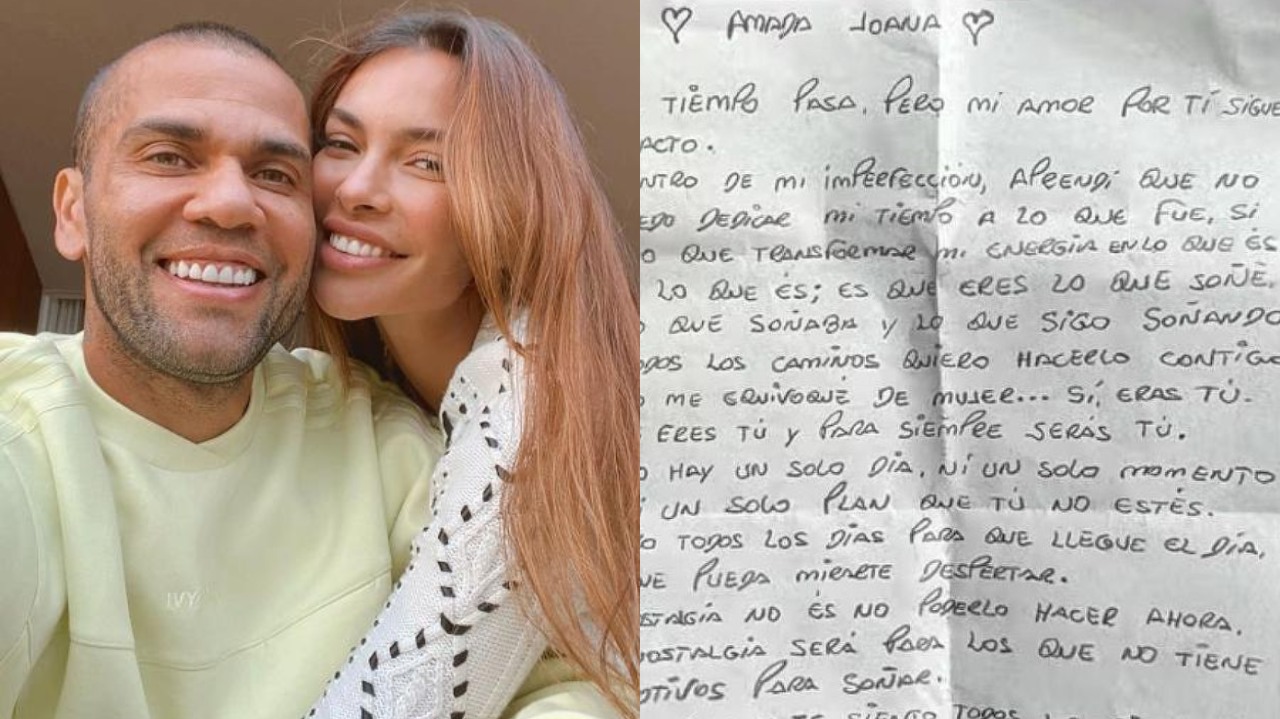 ♡ AMADA JOANA ♡
TIEMPO PASA, PERO MI AMOR POR TÍ SIGUE
ACTO.
NTRO DE MI IMPERFECCIÓN, APRENDÍ QUE NO
EDO DEDICAR MI TIEMPO A LO QUE FUE, SI
O QUE TRANSFORMAR MI ENERGÍA EN LO QUE ÉS
LO QUE ÉS; ES QUE ERES LO QUE SOÑÉ,
QUE SOÑABA Y LO QUE SIGO SOÑANDO
DOS LOS CAMINOS QUIERO HACERLO CONTIGO
O ME EQUIVOQUÉ DE MUJER... SÍ, ERAS TÚ.
ERES TÚ Y PARA SIEMPRE SERÁS TÚ.
O HAY UN SOLO DÍA, NÍ UN SOLO MOMENTO
UN SOLO PLAN QUE TÚ NO ESTÉS.
O TODOS LOS DÍAS PARA QUE LLEGUE EL DÍA,
UE PUEDA MIRARTE DESPERTAR.
STALGÍA NO ÉS NO PODERLO HACER AHORA.
OSTALGÍA SERÁ PARA LOS QUE NO TIENE
OTIVOS PARA SOÑAR.
SIENTO TODOS
IVY